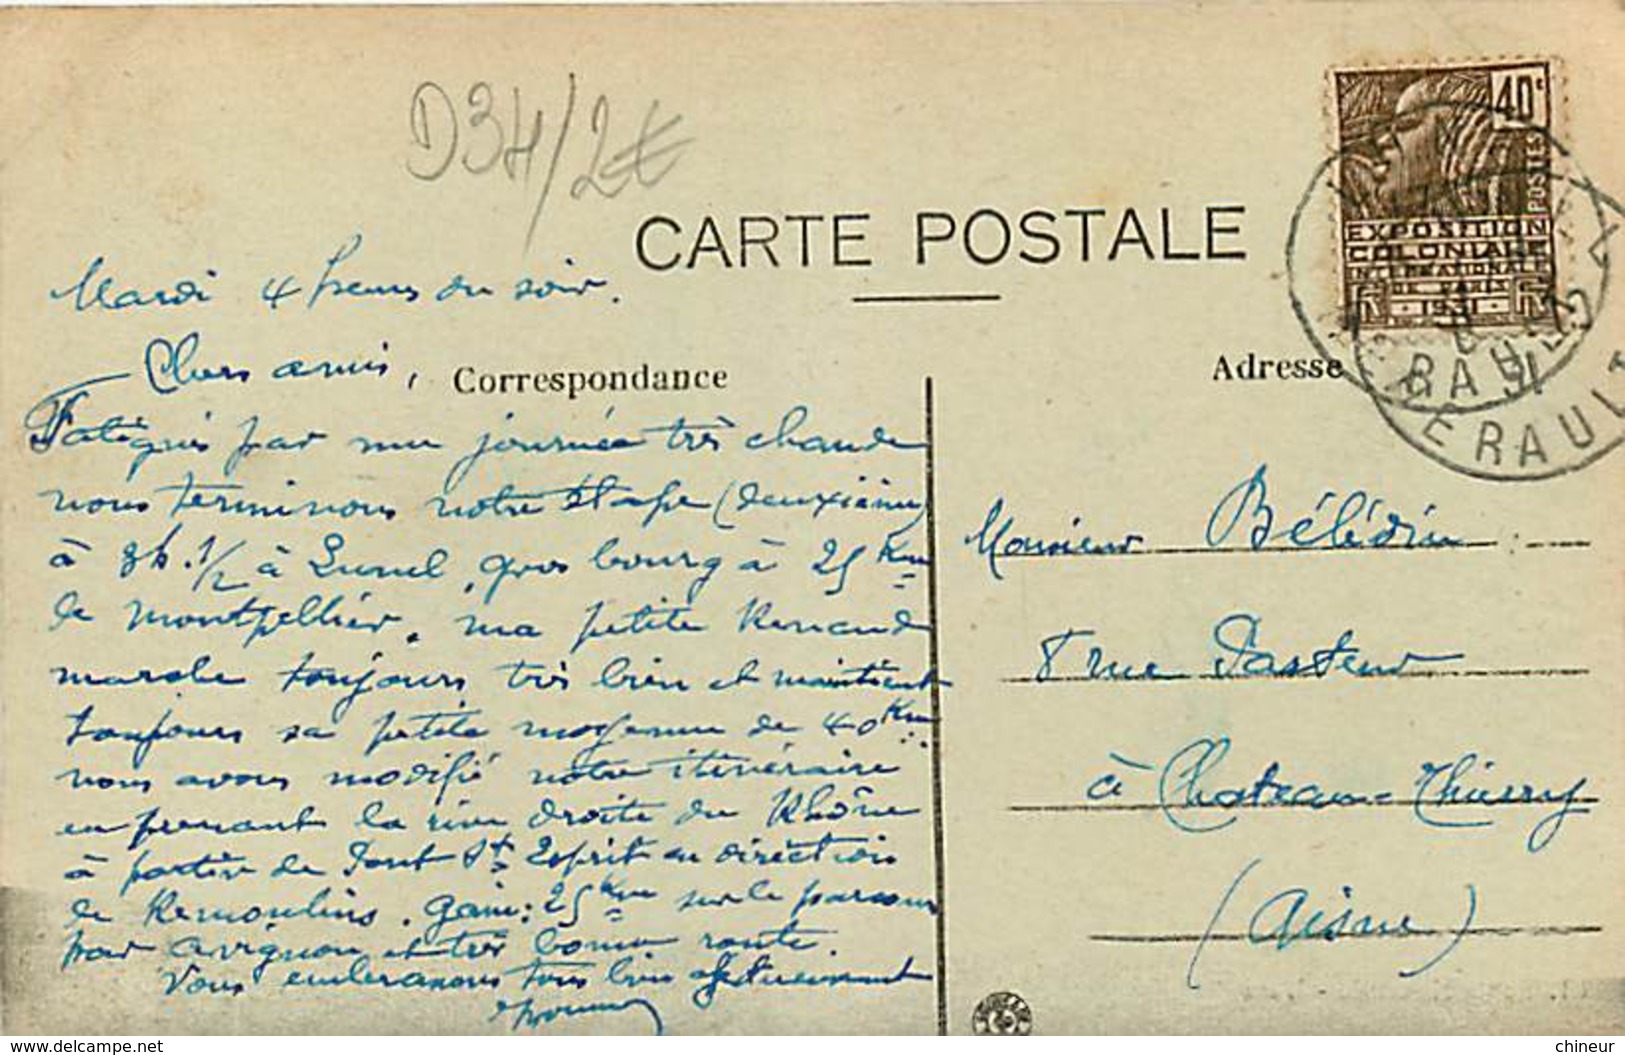 D34/2€
CARTE POSTALE
40c
POSTES
EXPOSITION
COLONIALE
INTERNATIONALE
DE PARIS
1931
HERAULT
Mardi 4 heures du soir.
Chers amis,
Correspondance
Fatigués par une journée très chaude
nous terminons notre étape (deuxième)
à 3h. 1/2 à Lunel, gros bourg à 25 Km
de Montpellier. Ma petite Renault
marche toujours très bien et maintient
toujours sa petite moyenne de 40 Km.
Nous avons modifié notre itinéraire
en prenant la rive droite du Rhône
à partir de Pont St Esprit en direction
de Remoulins. Gain: 25 Km sur le parcours
par Avignon et très bonne route.
Vous embrassons tous bien affectueusement
Adresse
Monsieur Bélédin
8 rue Pasteur
à Chateau-Thierry
(Aisne)
www.delcampe.net
chineur